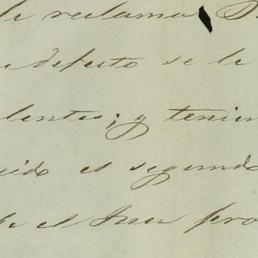 le reclama
defecto se le
lentes; y tenien
ido es segundo
el Juez pro